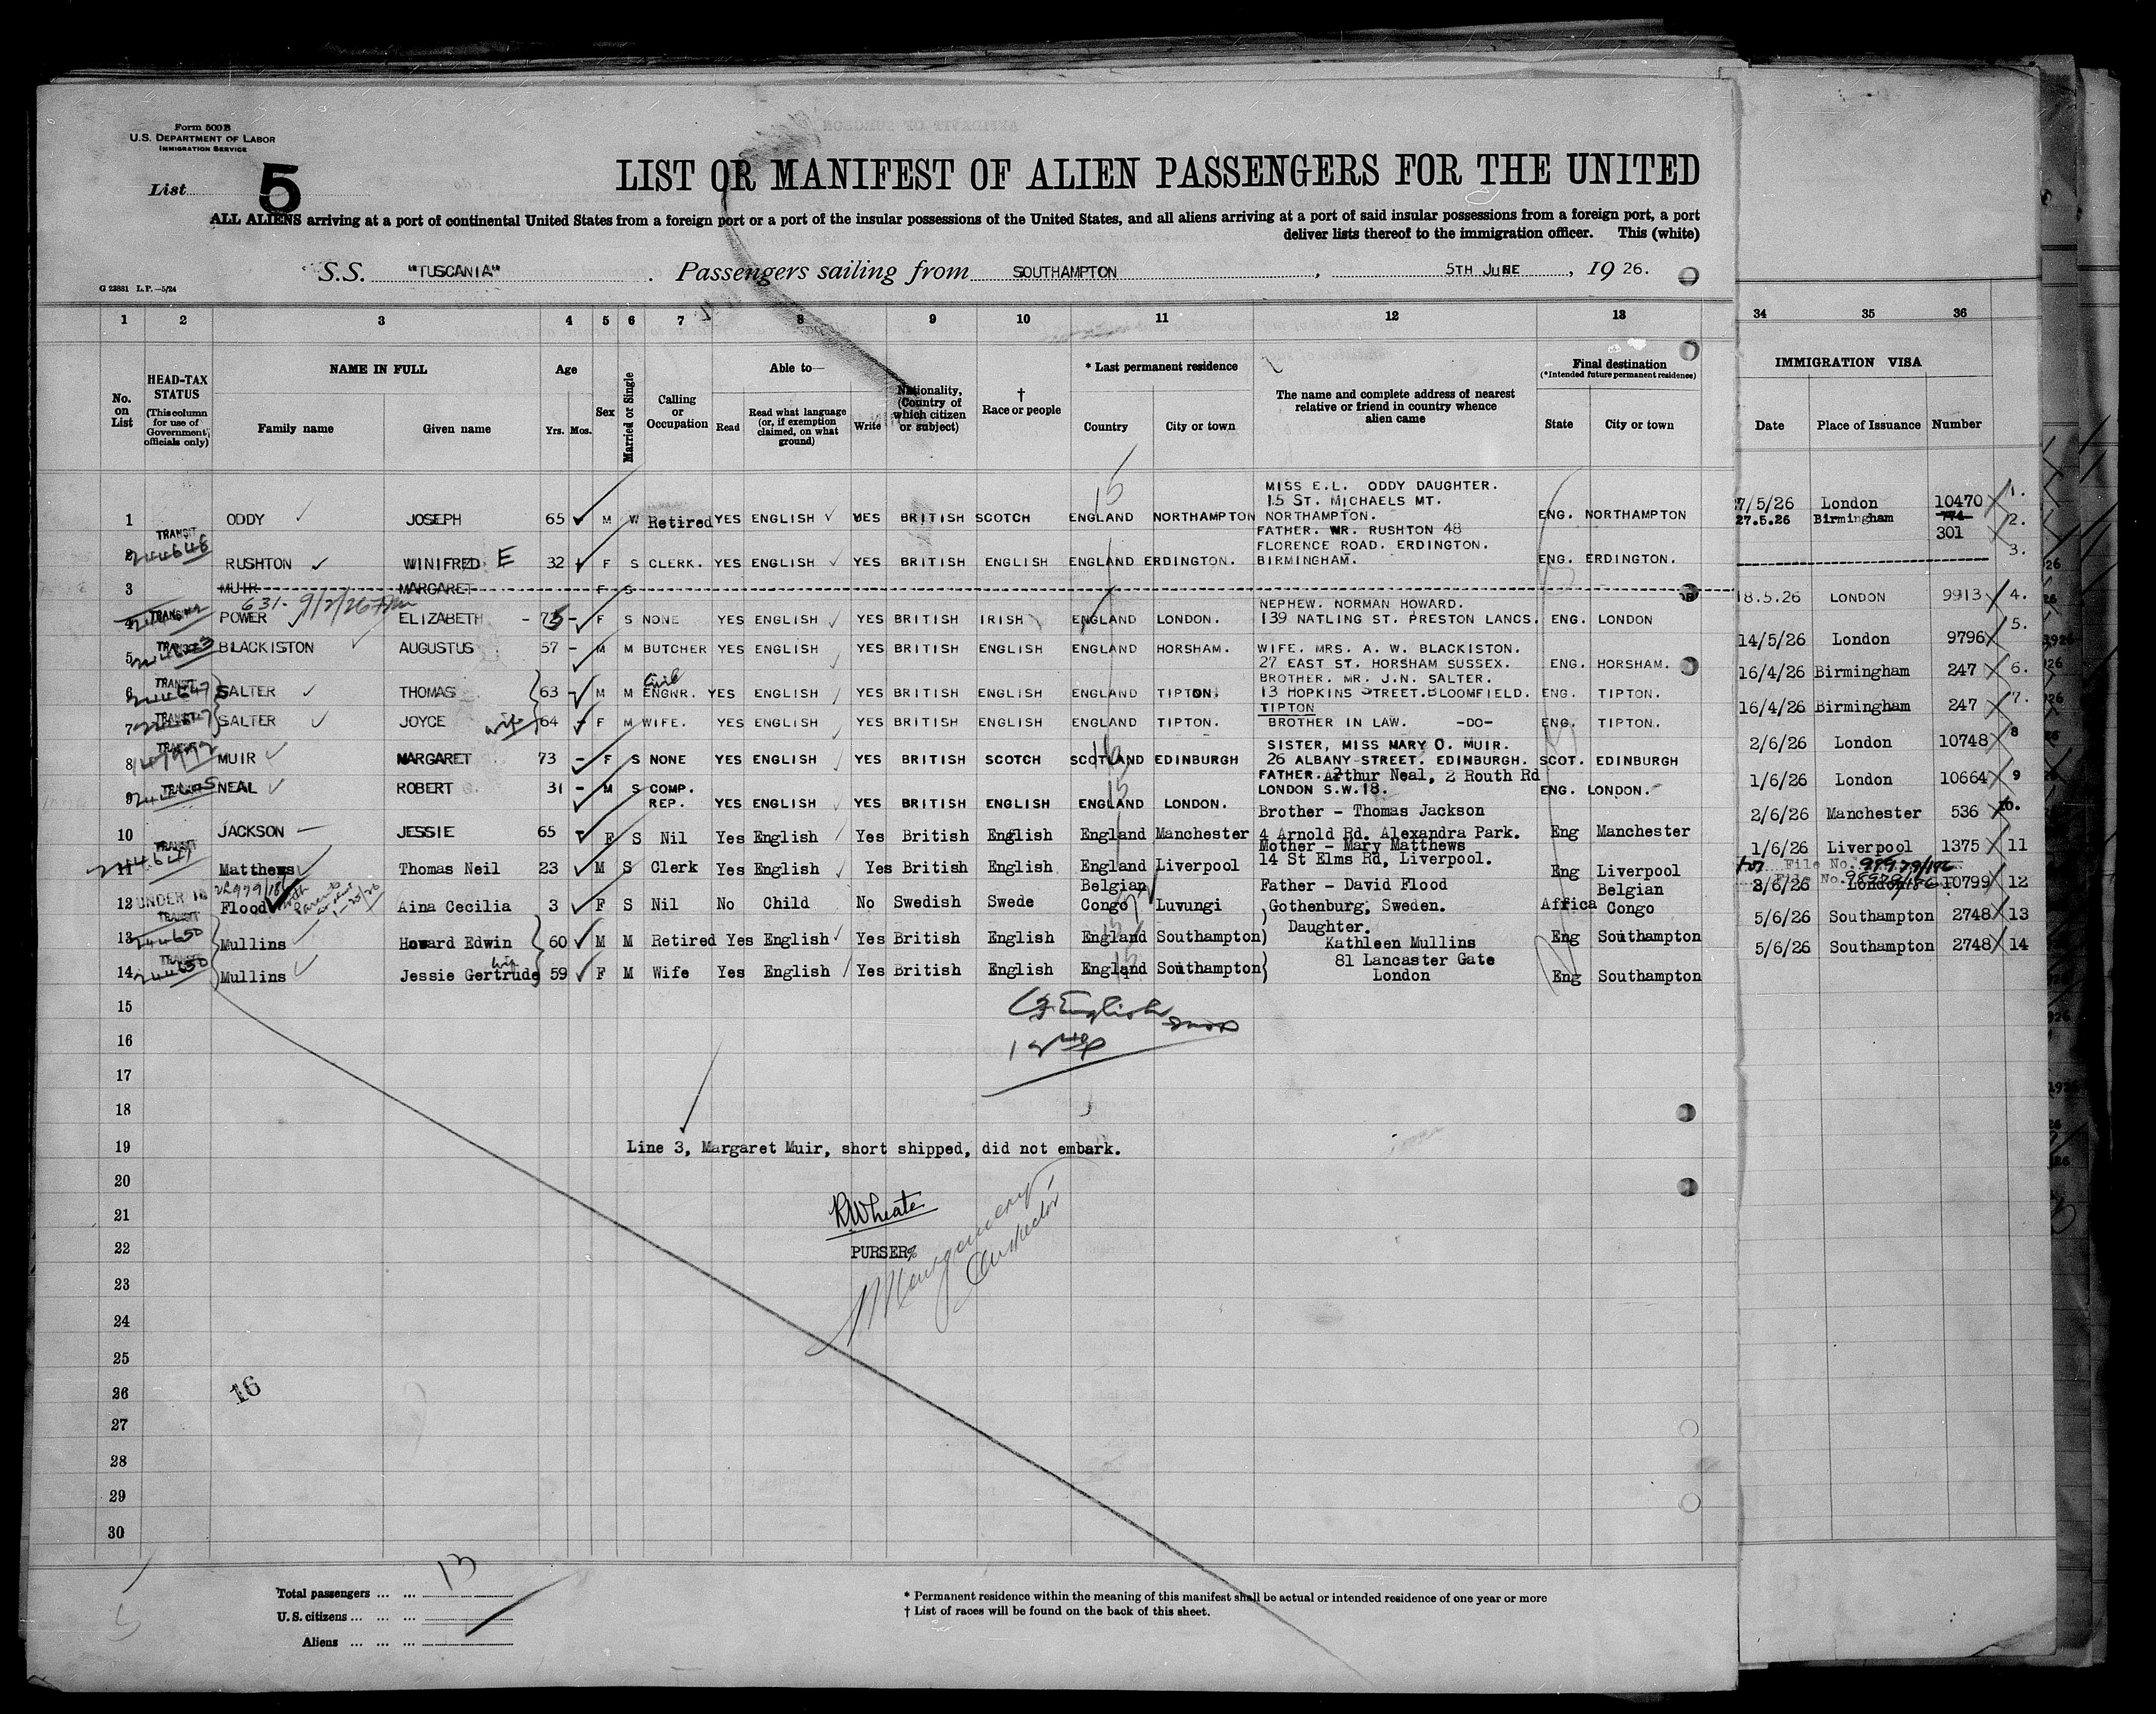 Form 500 B
U.S. DEPARTMENT OF LABOR
IMMIGRATION SERVICE
List 5
LIST OR MANIFEST OF ALIEN PASSENGERS FOR THE UNITED
ALL ALIENS arriving at a port of continental United States from a foreign port or a port of the insular possessions of the United States, and all aliens arriving at a port of said insular possessions from a foreign port, a port
deliver lists thereof to the immigration officer. This (white)
S.S. "TUSCANIA" . Passengers sailing from SOUTHAMPTON , 5TH JUNE , 19 26.
G 23881 L.P.—5/24
1 2 3 4 5 6 7 8 9 10 11 12 13 34 35 36
No. on List
HEAD-TAX STATUS (This column for use of Government officials only)
NAME IN FULL
Family name Given name
Age
Yrs. Mos.
Sex
Married or Single
Calling or Occupation
Able to—
Read Read what language (or, if exemption claimed, on what ground) Write
Nationality, (Country of which citizen or subject)
† Race or people
* Last permanent residence
Country City or town
The name and complete address of nearest relative or friend in country whence alien came
Final destination
(*Intended future permanent residence)
State City or town
IMMIGRATION VISA
Date Place of Issuance Number
MISS E.L. ODDY DAUGHTER.
15 ST. MICHAELS MT.
1 ODDY JOSEPH 65 M W Retired YES ENGLISH YES BRITISH SCOTCH ENGLAND NORTHAMPTON NORTHAMPTON. ENG. NORTHAMPTON 27/5/26 London 10470 1.
FATHER. MR. RUSHTON 48
FLORENCE ROAD. ERDINGTON.
2 TRANSIT 244648 RUSHTON WINIFRED E 32 F S CLERK. YES ENGLISH YES BRITISH ENGLISH ENGLAND ERDINGTON. BIRMINGHAM. ENG. ERDINGTON. 27.5.26 Birmingham 774 301 2.
3 MUIR MARGARET F S 3.
631- 9/2/26
NEPHEW. NORMAN HOWARD.
4 TRANSIT POWER ELIZABETH - 75 - F S NONE YES ENGLISH YES BRITISH IRISH ENGLAND LONDON. 139 NATLING ST. PRESTON LANCS. ENG. LONDON 18.5.26 LONDON 9913 4.
5 TRANSIT BLACKISTON AUGUSTUS 57 - M M BUTCHER YES ENGLISH YES BRITISH ENGLISH ENGLAND HORSHAM. WIFE. MRS. A. W. BLACKISTON.
27 EAST ST. HORSHAM SUSSEX. ENG. HORSHAM. 14/5/26 London 9796 5.
BROTHER. MR. J.N. SALTER.
6 TRANSIT 244647 SALTER THOMAS 63 - M M Civil ENGNR. YES ENGLISH YES BRITISH ENGLISH ENGLAND TIPTON. 13 HOPKINS STREET. BLOOMFIELD. ENG. TIPTON. 16/4/26 Birmingham 247 6.
TIPTON
7 TRANSIT SALTER JOYCE wife 64 - F M WIFE. YES ENGLISH YES BRITISH ENGLISH ENGLAND TIPTON. BROTHER IN LAW. -DO- ENG. TIPTON. 16/4/26 Birmingham 247 7.
SISTER, MISS MARY O. MUIR.
8 MUIR MARGARET 73 - F S NONE YES ENGLISH YES BRITISH SCOTCH SCOTLAND EDINBURGH 26 ALBANY STREET. EDINBURGH. SCOT. EDINBURGH 2/6/26 London 10748 8
FATHER. Arthur Neal, 2 Routh Rd
9 TRANSIT NEAL ROBERT 31 - M S COMP. REP. YES ENGLISH YES BRITISH ENGLISH ENGLAND LONDON. LONDON S.W.18. ENG. LONDON. 1/6/26 London 10664 9
Brother - Thomas Jackson
10 JACKSON JESSIE 65 F S Nil Yes English Yes British English England Manchester 4 Arnold Rd. Alexandra Park. Eng Manchester 2/6/26 Manchester 536 10.
Mother - Mary Matthews
11 TRANSIT Matthews Thomas Neil 23 M S Clerk Yes English Yes British English England Liverpool 14 St Elms Rd, Liverpool. Eng Liverpool 1/6/26 Liverpool 1375 11
File No. 98979/186
File No.
12 UNDER 16 Flood Aina Cecilia 3 F S Nil No Child No Swedish Swede Belgian Congo Luvungi Father - David Flood
Gothenburg, Sweden. Africa Belgian Congo 2/6/26 London 10799 12
Daughter.
13 TRANSIT 244650 Mullins Howard Edwin 60 M M Retired Yes English Yes British English England Southampton Kathleen Mullins Eng Southampton 5/6/26 Southampton 2748 13
81 Lancaster Gate
14 TRANSIT 244650 Mullins Jessie Gertrude wife 59 F M Wife Yes English Yes British English England Southampton London Eng Southampton 5/6/26 Southampton 2748 14
15
English
16
17
18
19 Line 3, Margaret Muir, short shipped, did not embark.
20
21 RWheate
22 PURSER
Montgomery
Inspector
23
24
25
26 16
27
28
29
30
Total passengers ... ... 13
U.S. citizens ... ... ...
Aliens ... ... ...
* Permanent residence within the meaning of this manifest shall be actual or intended residence of one year or more
† List of races will be found on the back of this sheet.